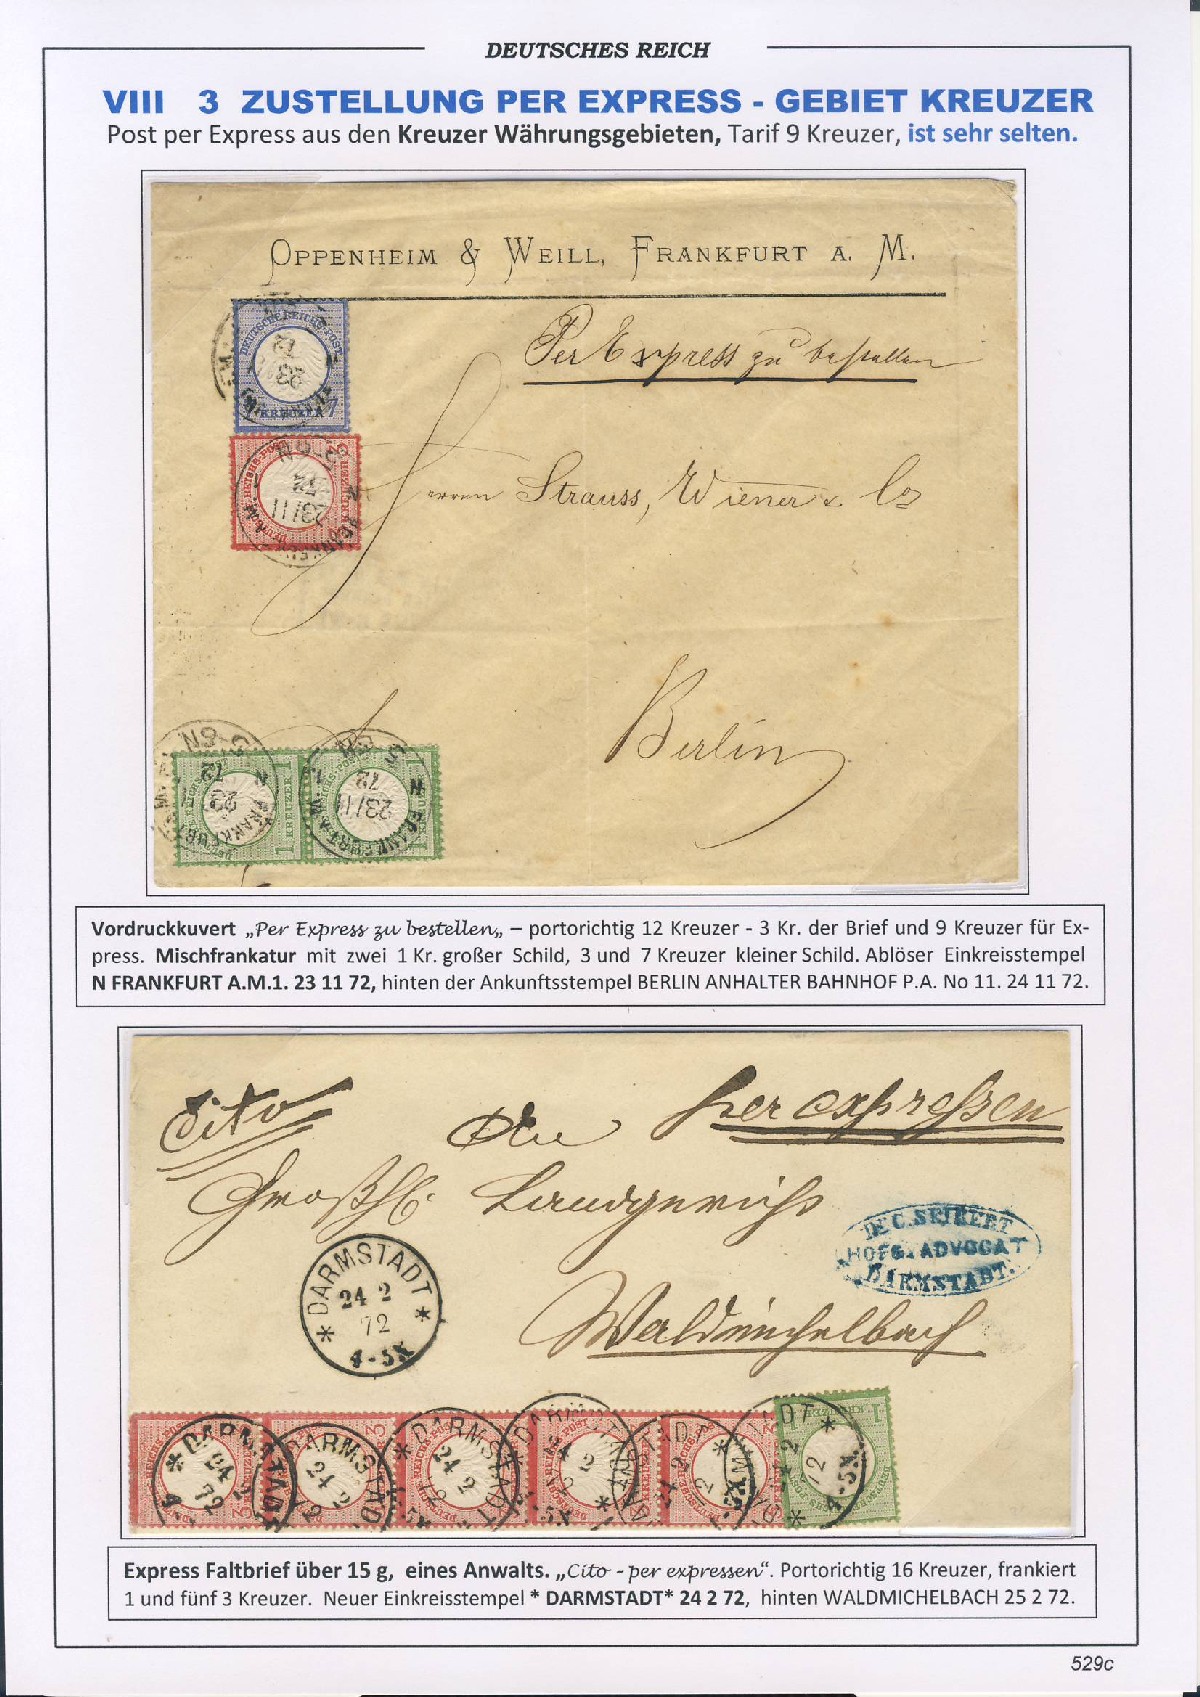 DEUTSCHES REICH
VIII 3 ZUSTELLUNG PER EXPRESS - GEBIET KREUZER
Post per Express aus den Kreuzer Währungsgebieten, Tarif 9 Kreuzer, ist sehr selten.
OPPENHEIM & WEILL, FRANKFURT A. M.
Per Express zu bestellen
Herren Strauss, Wiener & Co
Berlin
Vordruckkuvert „Per Express zu bestellen„ – portorichtig 12 Kreuzer - 3 Kr. der Brief und 9 Kreuzer für Ex-
press. Mischfrankatur mit zwei 1 Kr. großer Schild, 3 und 7 Kreuzer kleiner Schild. Ablöser Einkreisstempel
N FRANKFURT A.M.1. 23 11 72, hinten der Ankunftsstempel BERLIN ANHALTER BAHNHOF P.A. No 11. 24 11 72.
Cito
per expressen
An
Großhl. Landgericht
Dr. C. SEIBERT
HOFG. ADVOCAT
DARMSTADT.
DARMSTADT
24 2
72
4-5N
Waldmichelbach
Express Faltbrief über 15 g, eines Anwalts. „Cito - per expressen“. Portorichtig 16 Kreuzer, frankiert
1 und fünf 3 Kreuzer. Neuer Einkreisstempel * DARMSTADT* 24 2 72, hinten WALDMICHELBACH 25 2 72.
529c